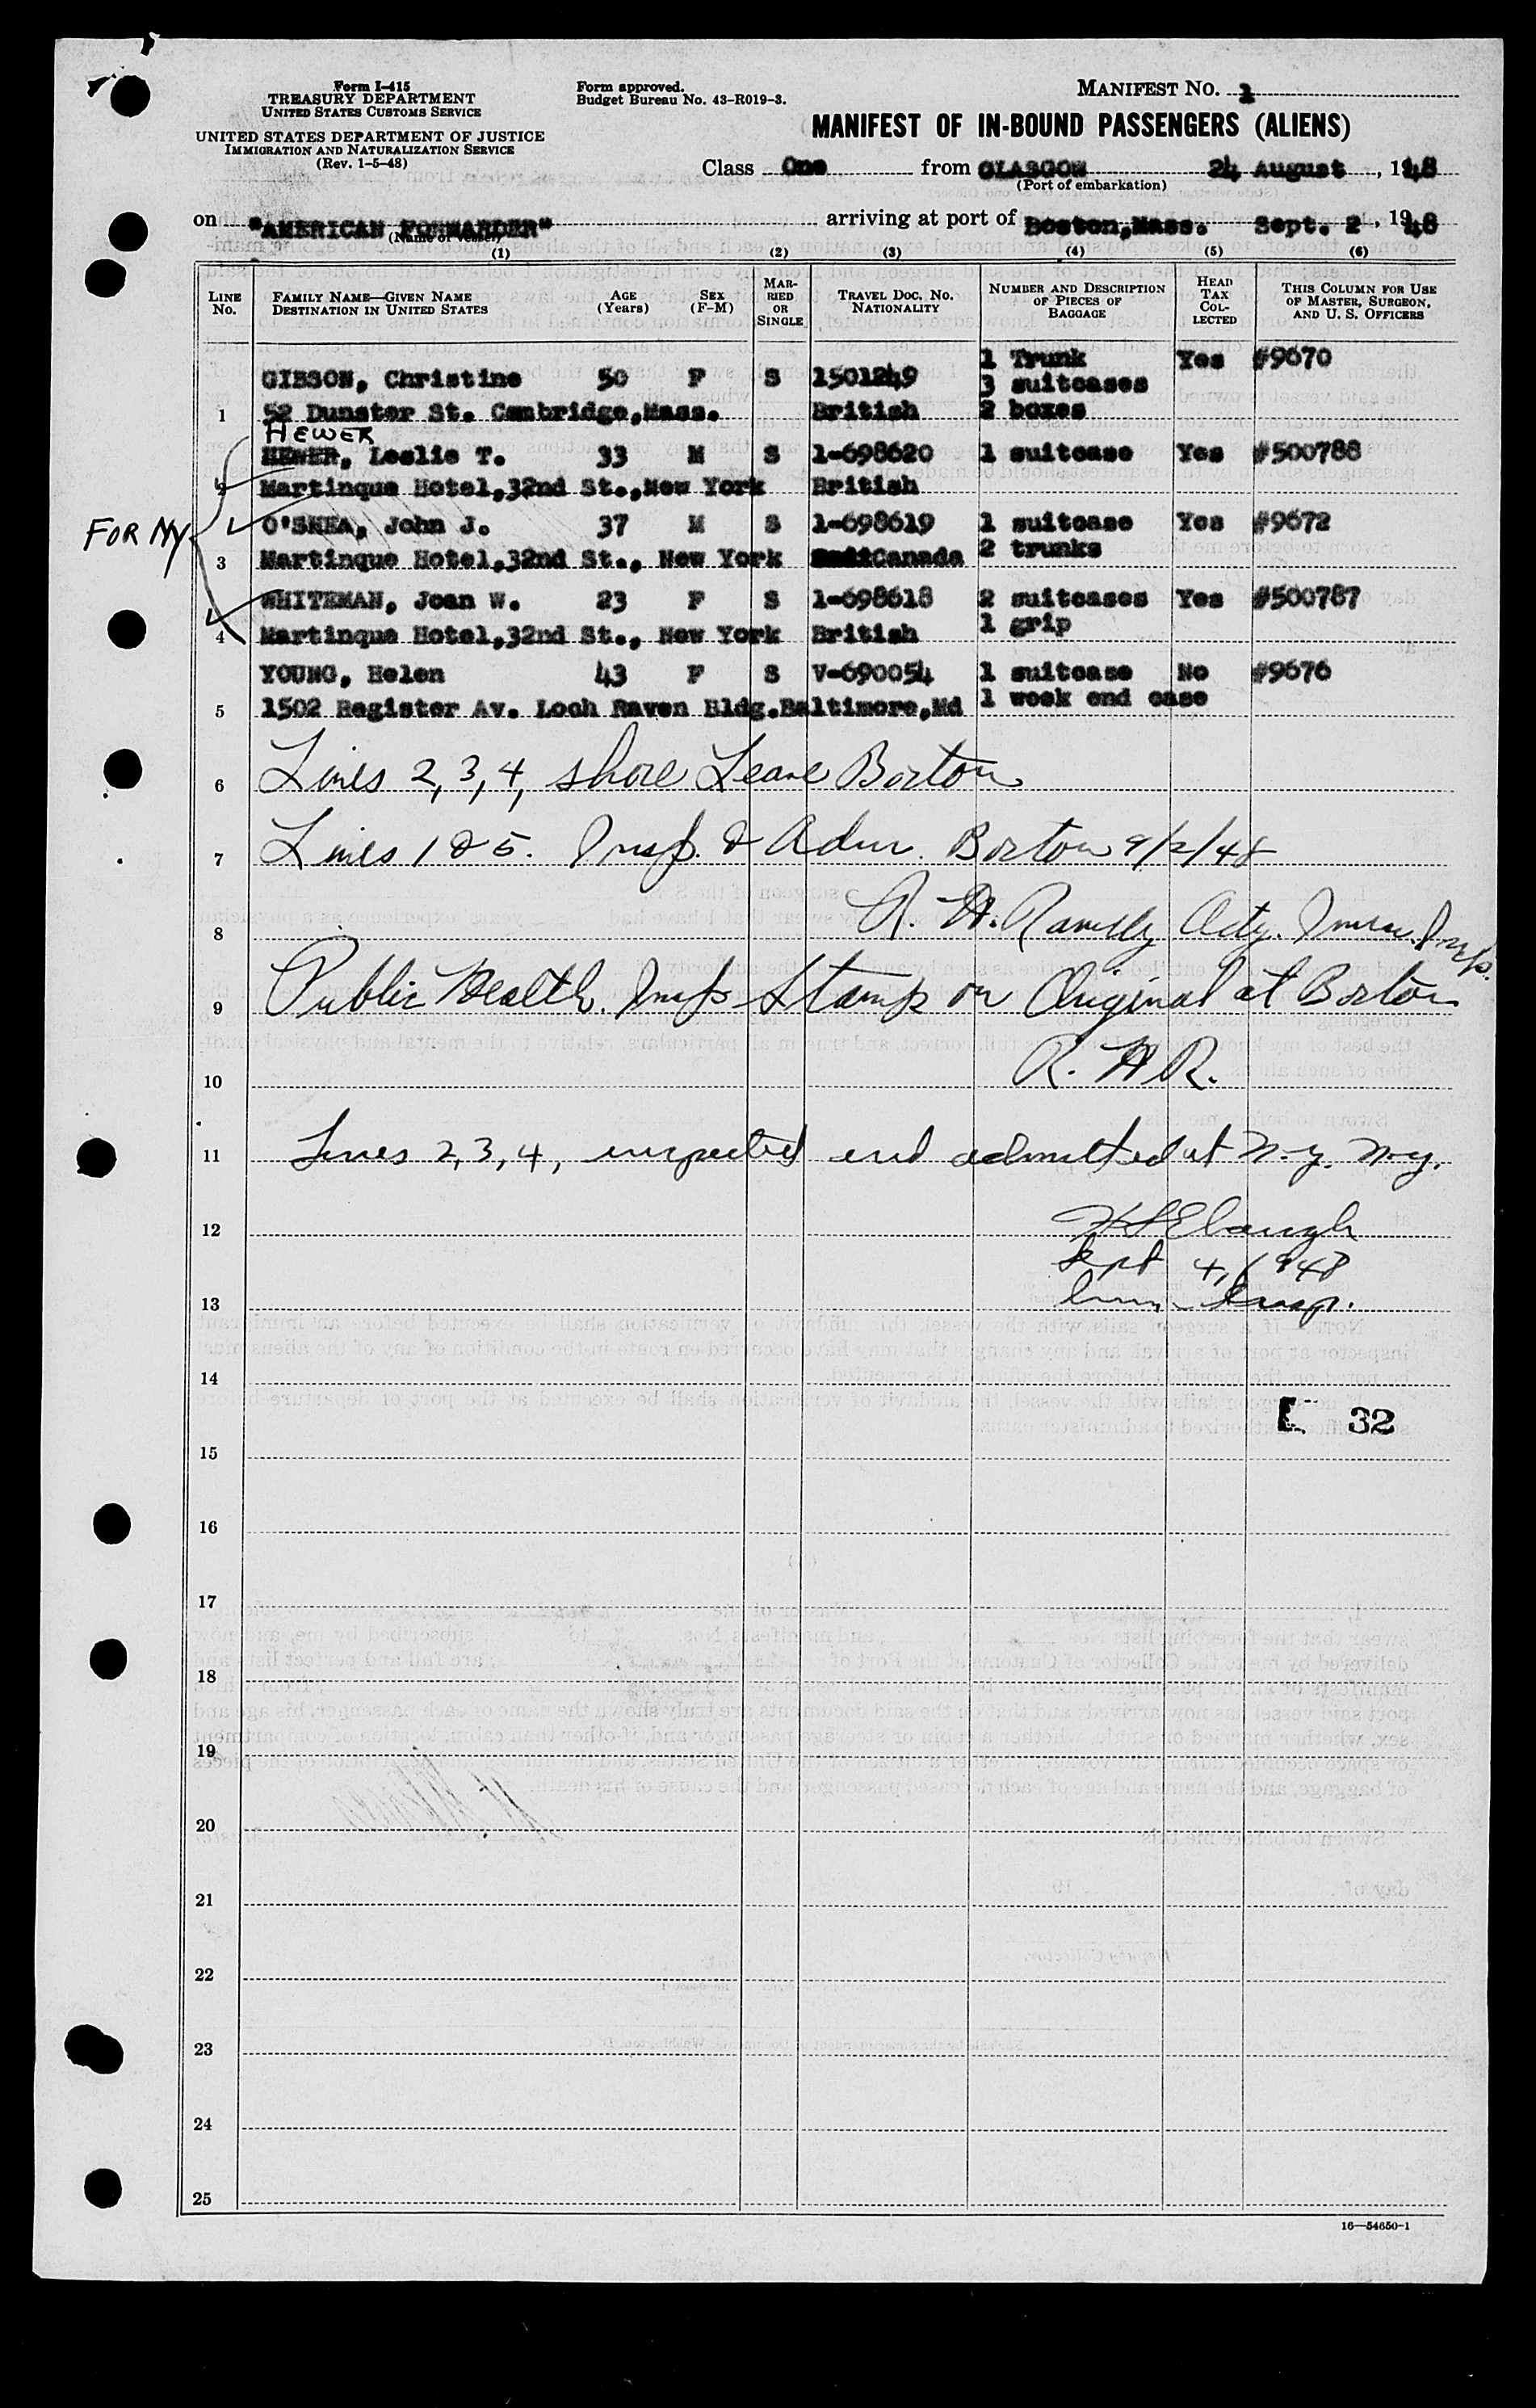 Form I-415
TREASURY DEPARTMENT
UNITED STATES CUSTOMS SERVICE
UNITED STATES DEPARTMENT OF JUSTICE
IMMIGRATION AND NATURALIZATION SERVICE
(Rev. 1-5-48)
Form approved.
Budget Bureau No. 43-R019-3.
MANIFEST NO. 2
MANIFEST OF IN-BOUND PASSENGERS (ALIENS)
Class One from GLASGOW 24 August, 1948
(Port of embarkation)
on "AMERICAN FORWARDER" arriving at port of Boston,Mass. Sept. 2, 1948
(Name of vessel)
(1) (2) (3) (4) (5) (6)
LINE No. FAMILY NAME—GIVEN NAME DESTINATION IN UNITED STATES AGE (Years) SEX (F-M) MARRIED OR SINGLE TRAVEL DOC. NO. NATIONALITY NUMBER AND DESCRIPTION OF PIECES OF BAGGAGE HEAD TAX COLLECTED THIS COLUMN FOR USE OF MASTER, SURGEON, AND U. S. OFFICERS
1 Trunk Yes #9670
GIBSON, Christine 50 F S 1501249 3 suitcases
1 52 Dunster St. Cambridge,Mass. British 2 boxes
HEWER
HEWER, Leslie T. 33 M S 1-698620 1 suitcase Yes #500788
2 Martinque Hotel,32nd St.,New York British
FOR NY
O'SHEA, John J. 37 M S 1-698619 1 suitcase Yes #9672
3 Martinque Hotel,32nd St., New York Canada 2 trunks
WHITEMAN, Joan W. 23 F S 1-698618 2 suitcases Yes #500787
4 Martinque Hotel,32nd St., New York British 1 grip
YOUNG, Helen 43 F S V-690054 1 suitcase No #9676
5 1502 Register Av. Loch Raven Bldg.Baltimore,Md 1 week end case
6 Lines 2, 3, 4, shore Leave Boston
7 Lines 1 & 5. Insp. & Adm. Boston 9/2/48
8 R. H. Actg. Imm. Insp.
9 Public Health Insp Stamp on Original at Boston
10 R. H R.
11 Lines 2, 3, 4, inspected and admitted at N.Y. N.Y.
12 Ebaugh
Sept 4, 1948
13 Imm. Insp.
14
32
15
16
17
18
19
20
21
22
23
24
25
16—54650-1